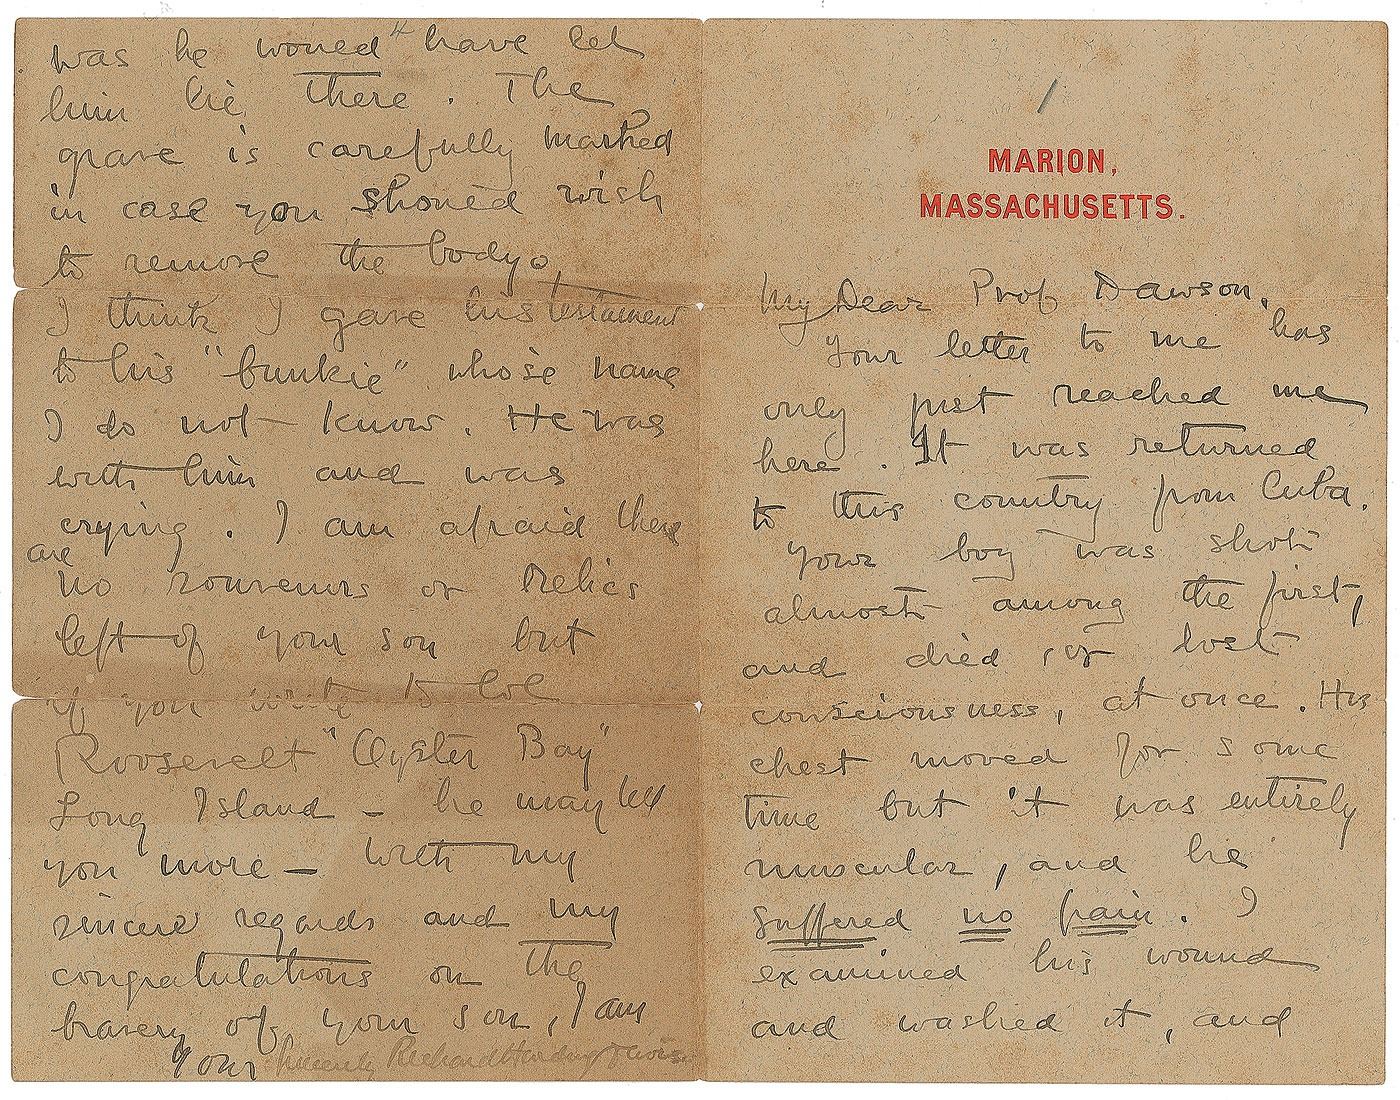 1
MARION,
MASSACHUSETTS.
My Dear Prof Dawson,
Your letter to me has
only just reached me
here. It was returned
to this country from Cuba.
Your boy was shot
almost among the first,
and died, or lost
consciousness, at once. His
chest moved for some
time but it was entirely
muscular, and he
suffered no pain. I
examined his wound
and washed it, and
4
was he would have let
him lie there. The
grave is carefully marked
in case you should wish
to remove the body.
I think I gave his testament
to his "bunkie" whose name
I do not know. He was
with him and was
crying. I am afraid there
are
no souvenirs or relics
left of your son but
if you write to Col
Roosevelt "Oyster Bay"
Long Island - he may tell
you more - With my
sincere regards and my
congratulations on the
bravery of your son, I am
Your Sincerely Richard Harding Davis